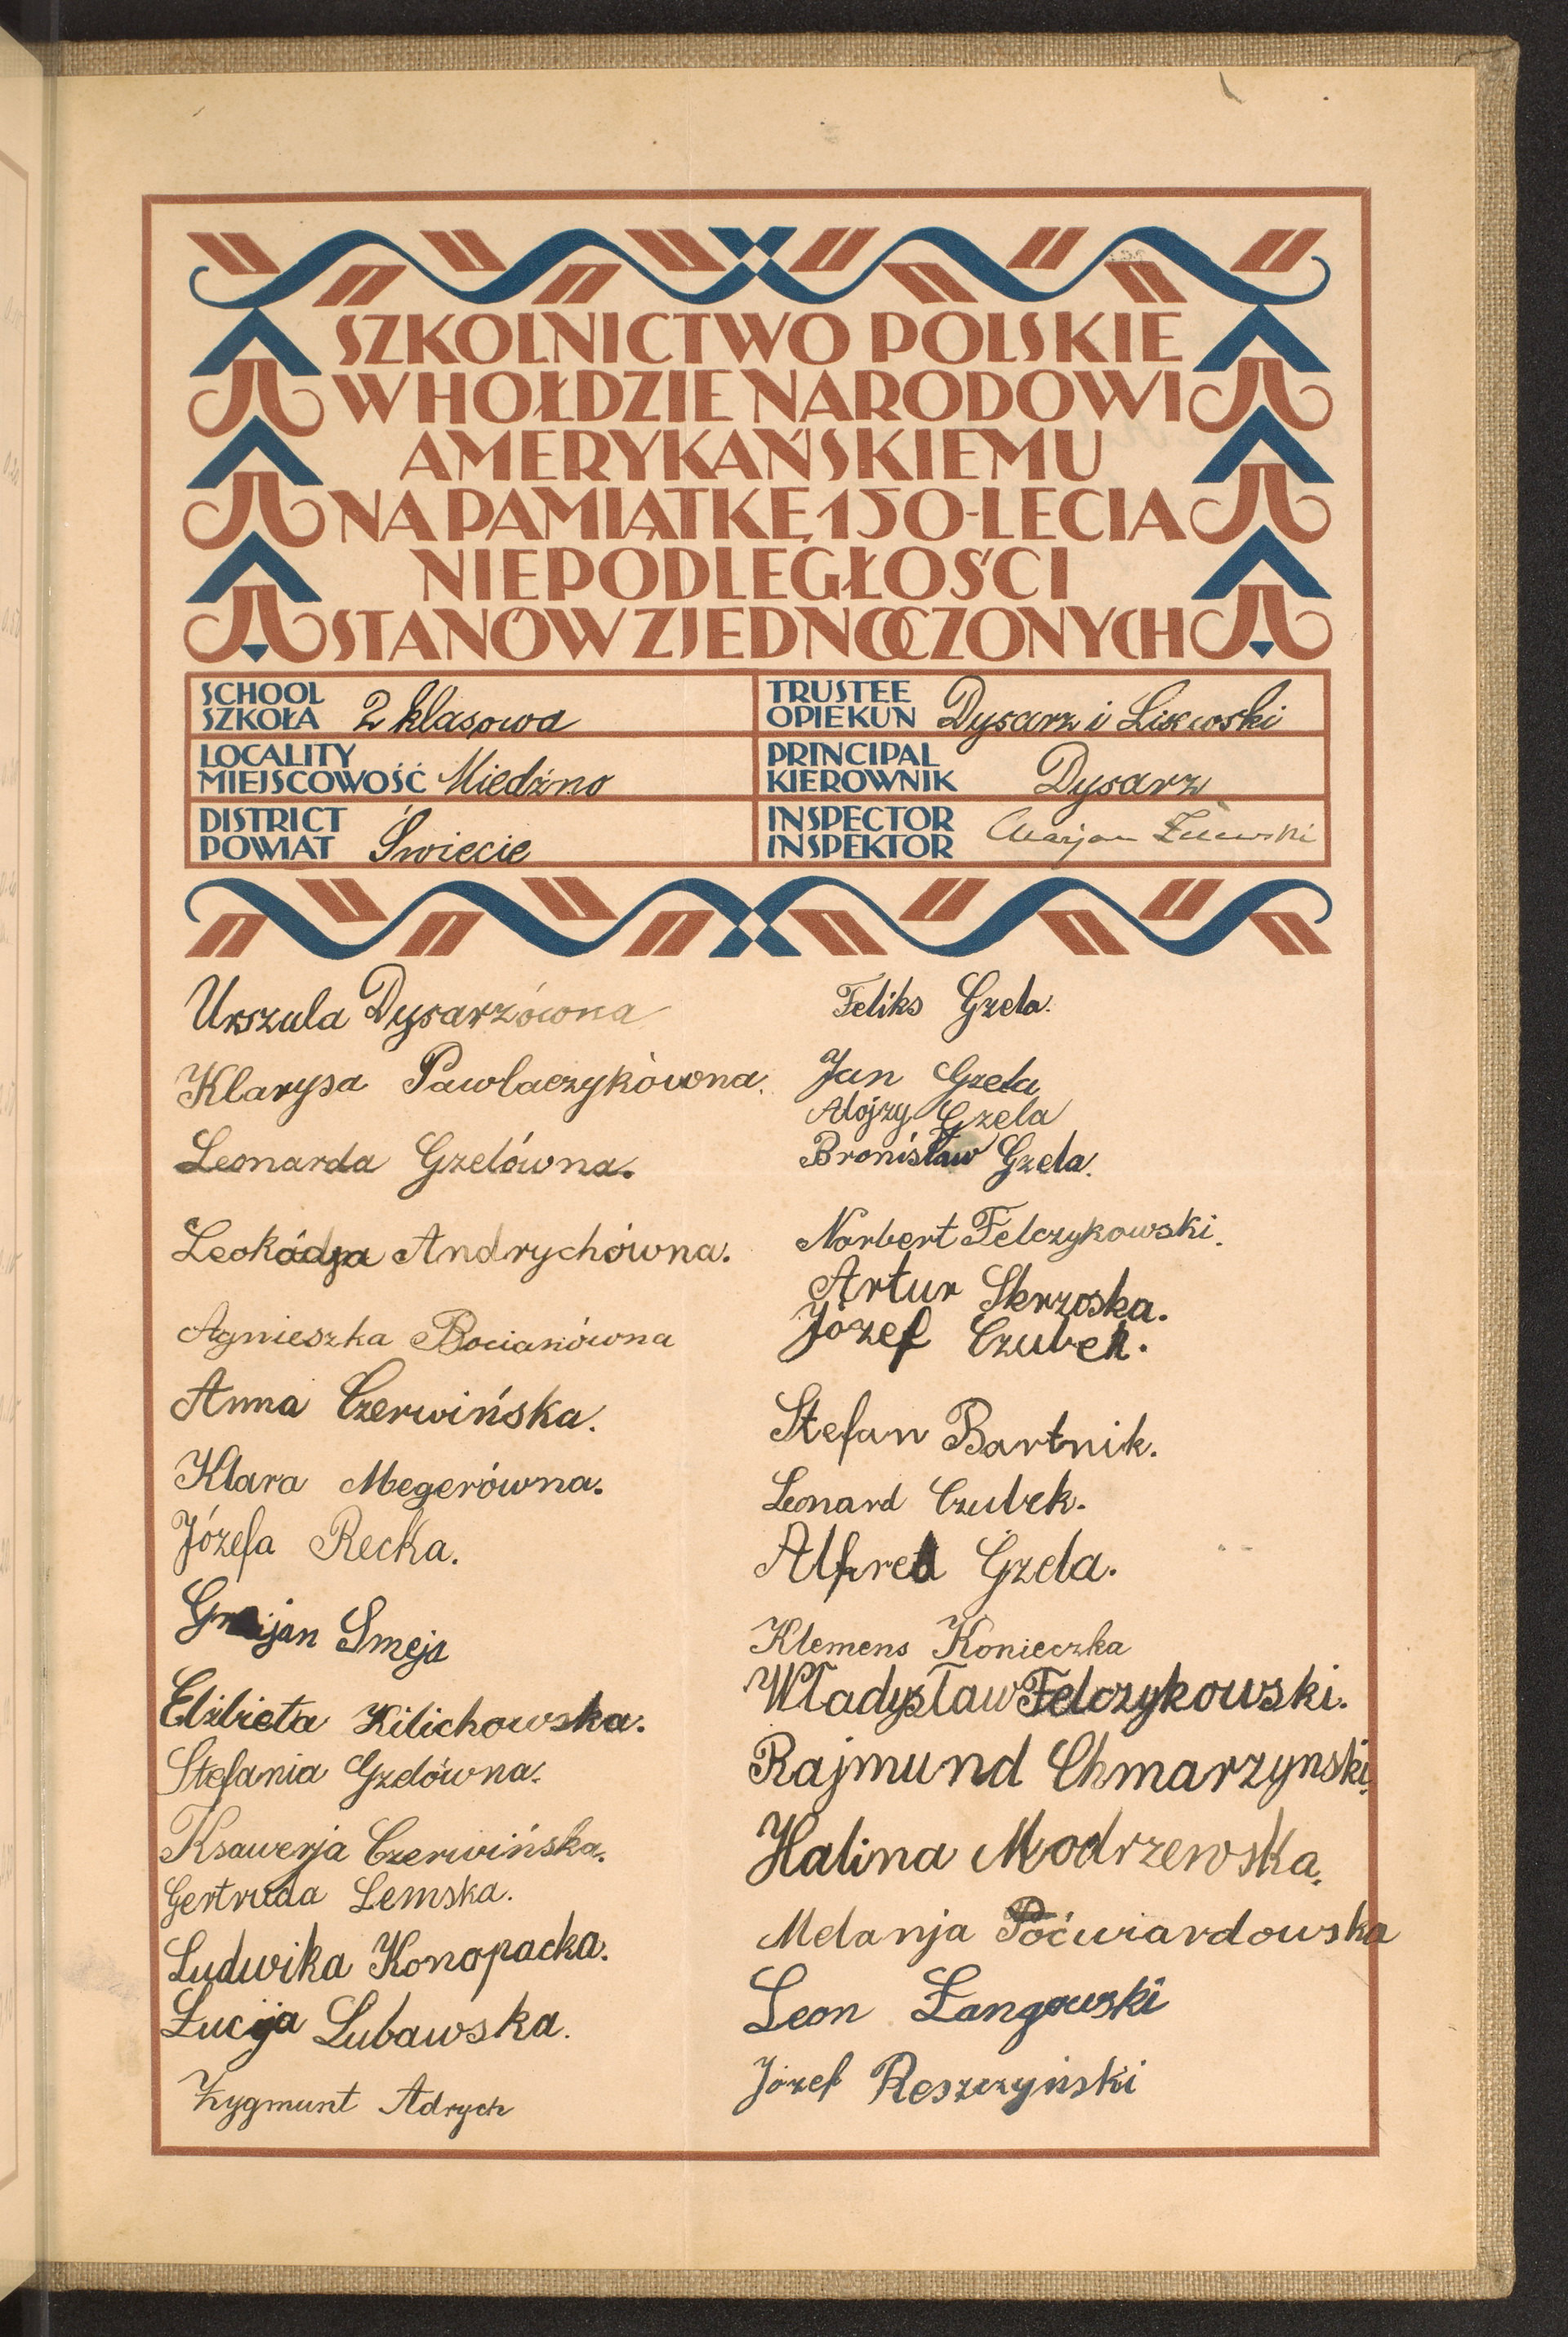 SZKOLNICTWO POLSKIE
W HOŁDZIE NARODOWI
AMERYKAŃSKIEMU
NA PAMIĄTKĘ 150-LECIA
NIEPODLEGŁOŚCI
STANÓW ZJEDNOCZONYCH
SCHOOL
SZKOŁA 2 klasowa
LOCALITY
MIEJSCOWOŚĆ Miedźno
DISTRICT
POWIAT Świecie
TRUSTEE
OPIEKUN Dysarz i Liskowski
PRINCIPAL
KIEROWNIK Dysarz
INSPECTOR
INSPEKTOR Marjan
Urszula Dysarzówna
Klarysa Pawlaczykówna.
Leonarda Gzelówna.
Leokadja Andrychówna.
Agnieszka Bocianówna
Anna Czerwińska.
Klara Megerówna.
Józefa Recka.
Smeja
Elżbieta Kilichowska.
Stefania Gzelówna.
Ksawerja Czerwińska.
Gertruda Lemska.
Ludwika Konopacka.
Łucja Lubawska.
Zygmunt Adrych
Feliks Gzela.
Jan Gzela
Alojzy Gzela
Bronisław Gzela.
Norbert Felczykowski.
Artur Skrzoska.
Józef Czubek.
Stefan Bartnik.
Leonard Czubek.
Alfred Gzela.
Klemens Konieczka
Władysław Felczykowski.
Rajmund Chmarzynski.
Halina Modrzewska.
Melanja Poćwiardowska
Leon Langowski
Józef Reszczyński